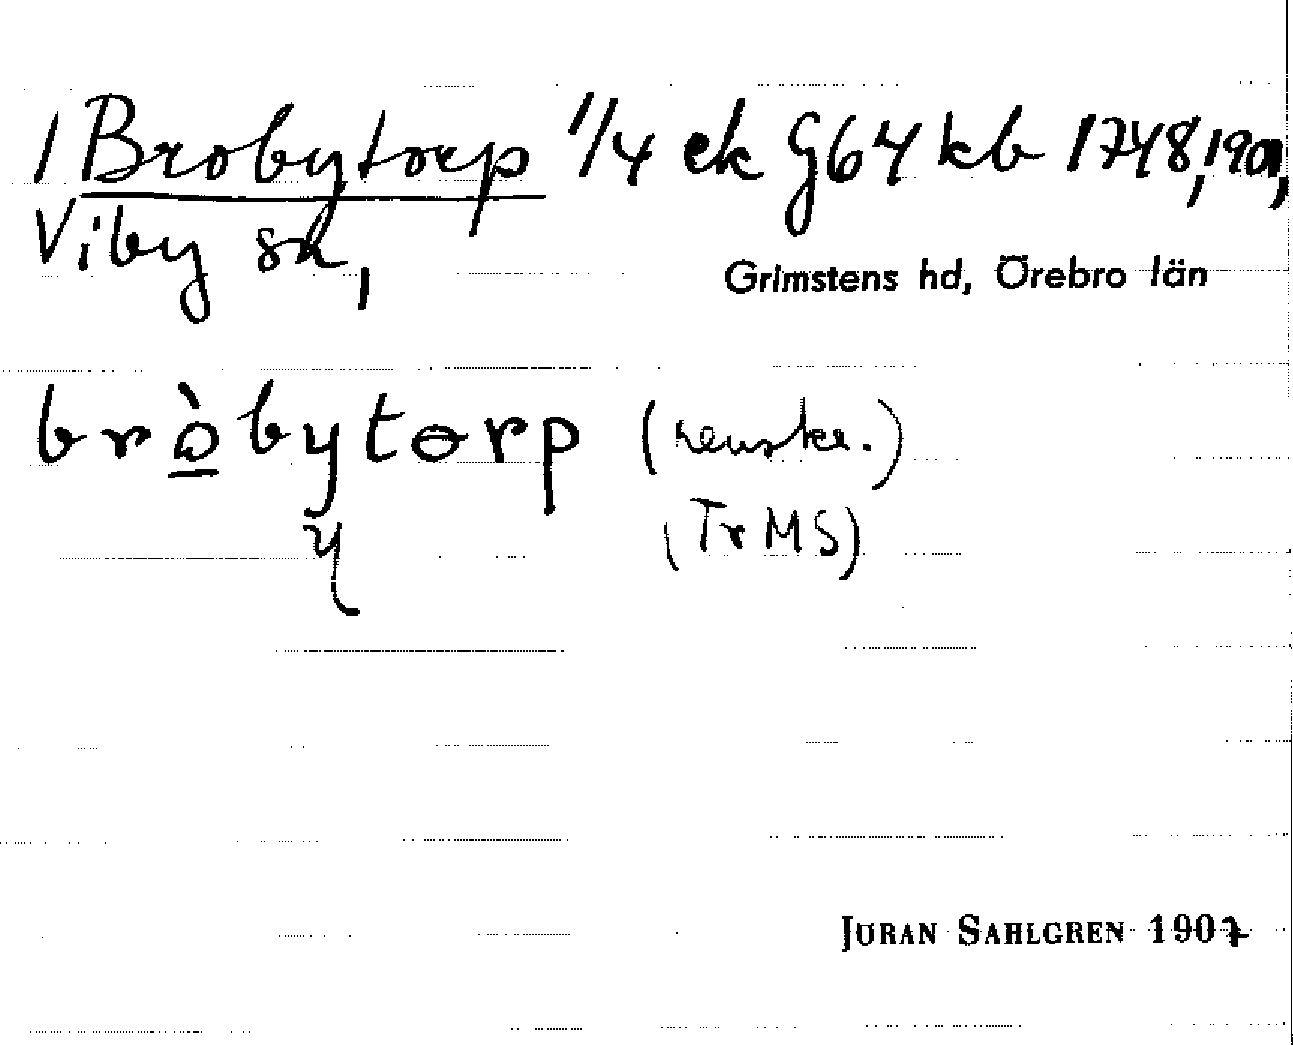 1 Brobytorp 1/4 ek G64 kb 1748, 1901,
Viby sn,
Grimstens hd, Örebro län
bròbytorp (renskr.)
y (Tr MS)
JÖRAN SAHLGREN 1907